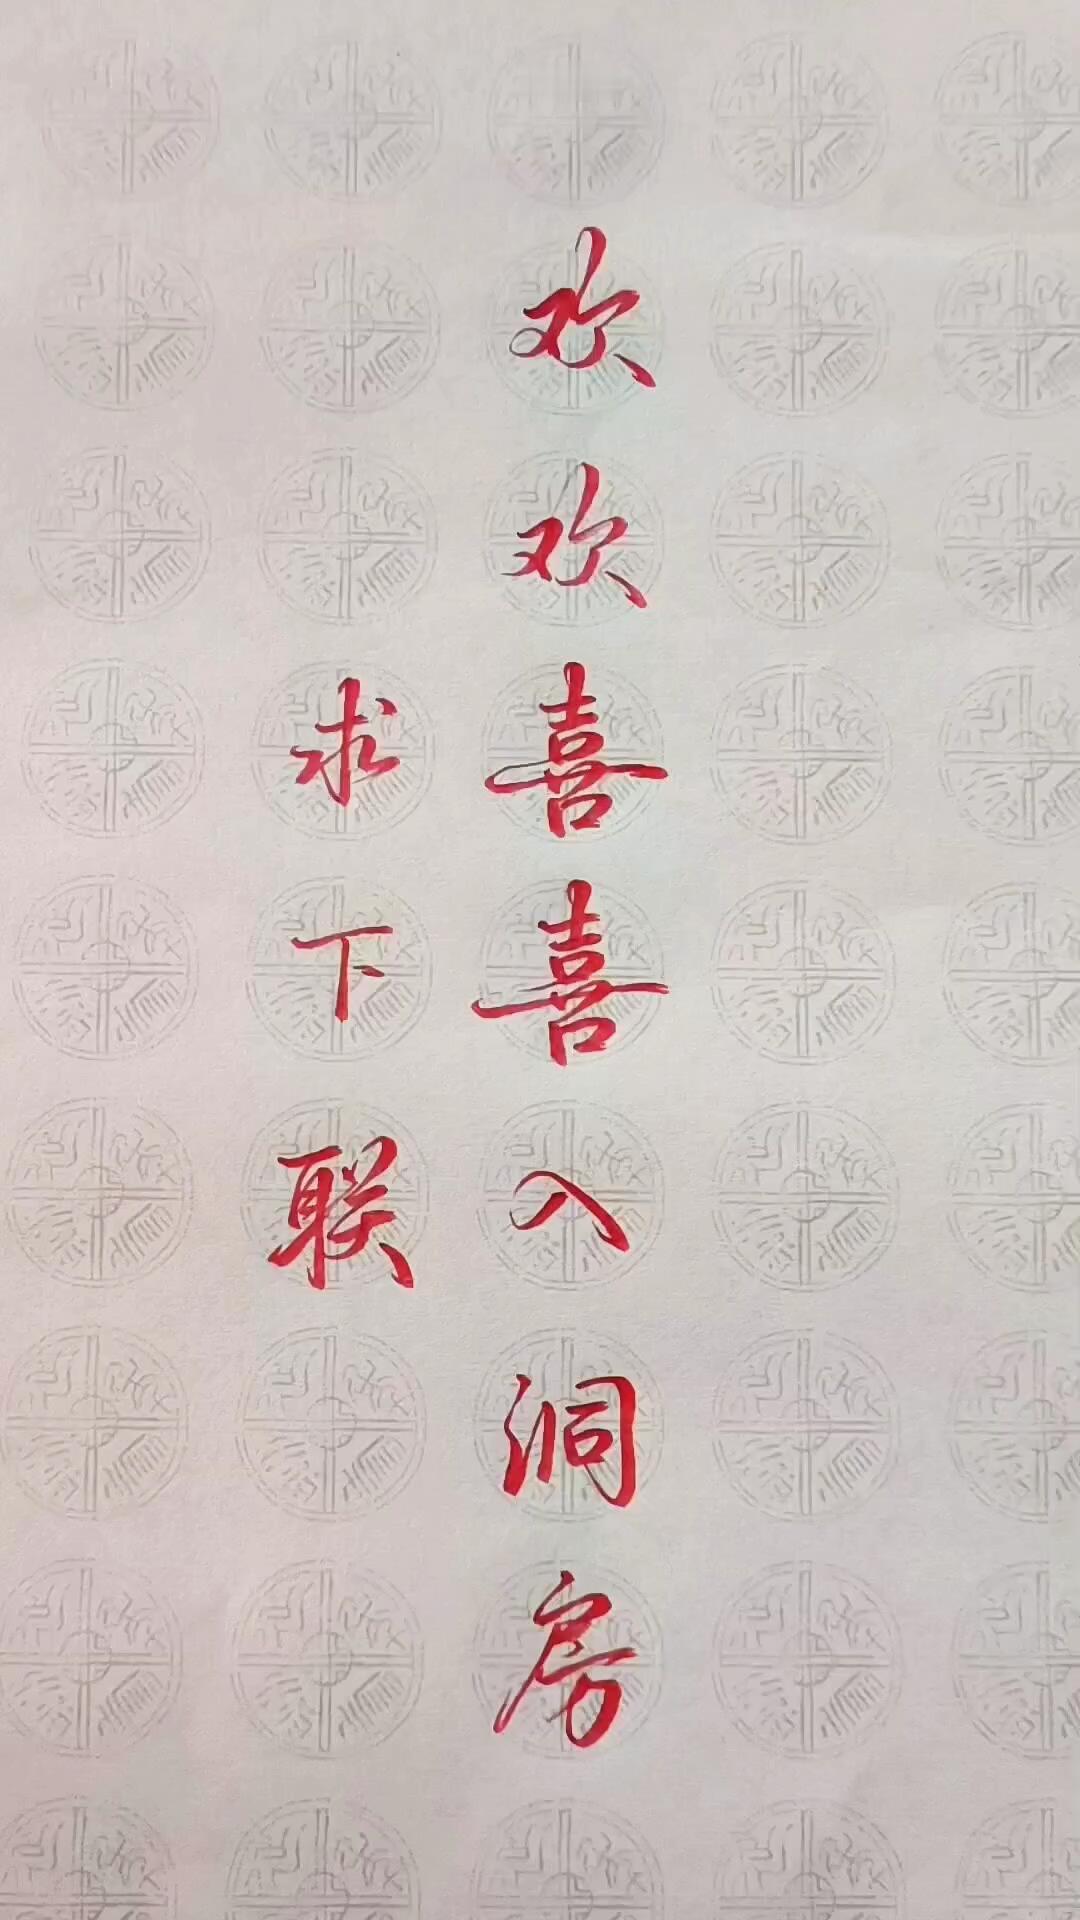 欢欢喜喜入洞房
求下联